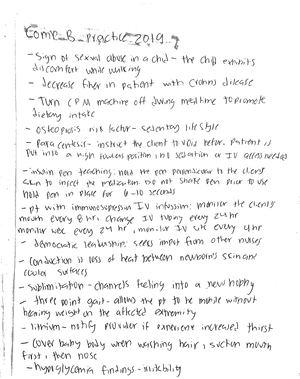 Comp_B_Practice_2019_7
- Sign of sexual abuse in a child - the child exhibits
discomfort while walking
- decrease fiber in patient with Crohns disease
- Turn CPM machine off during mealtime to promote
dietary intake
- osteoporosis risk factor - sedentary lifestyle
- paracentesis - instruct the client to void before. Patient is
put into a high fowlers position, no sedation or IV access needed
- insulin pen teaching: hold the pen perpendicular to the client
skin to inject the medication, do not shake pen prior to use
hold pen in place for 6-10 seconds
- pt with immunosupression IV infussion: monitor the client's
mouth every 8 hr, change IV tubing every 24 hr
monitor WBC every 24 hr, monitor IV site every 4hr
- democratic leadership: seeks input from other nurses
- conduction is loss of heat between newborn's skin and
cooler surfaces
- sublimitation - channels feeling into a new hobby
- three point gait - allows the pt to be mobile without
bearing weight on the affected extremity
- lithium - notify provider if experience increased thirst
- cover baby body when washing hair, suction mouth
first, then nose
- hypoglycemia findings - irritability